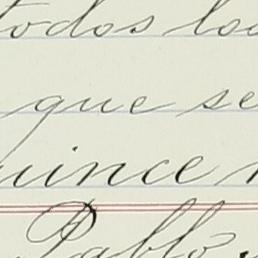 todos los
que se
quince
Pablo